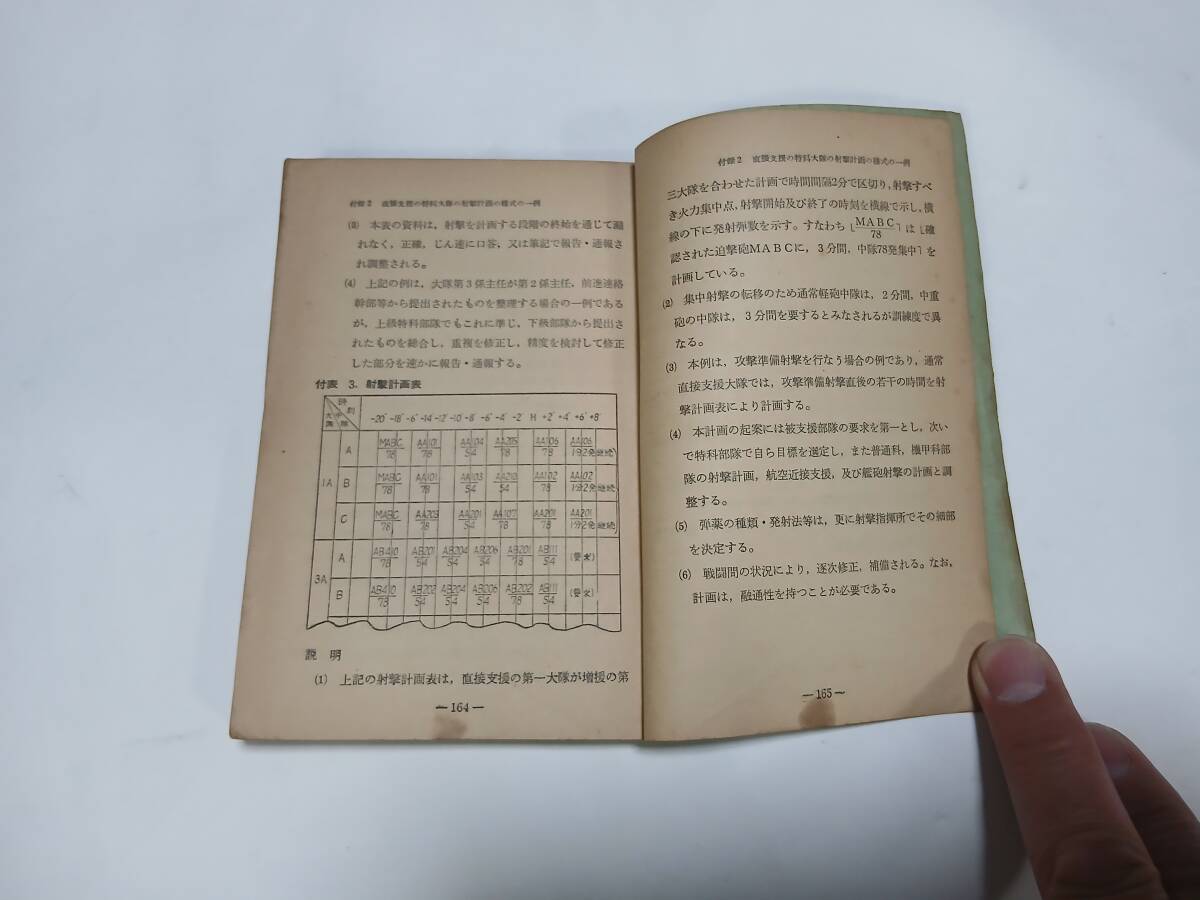 付録2 直接支援の特科大隊の射撃計画の様式の一例
(3) 本表の資料は，射撃を計画する段階の終始を通じて漏
れなく，正確，じん速に口答，又は筆記で報告・通報さ
れ調整される。
(4) 上記の例は，大隊第3係主任が第2係主任，前進連絡
幹部等から提出されたものを整理する場合の一例である
が，上級特科部隊でもこれに準じ，下級部隊から提出さ
れたものを総合し，重複を修正し，精度を検討して修正
した部分を速かに報告・通報する。
付表 3. 射撃計画表
時刻 大隊 中隊 -20′ -18′ -6′ -14′ -12′ -10′ -8′ -6′ -4′ -2′ H +2′ +4′ +6′ +8′
1A A MABC/78 AA101/78 AA104/54 AA205/78 AA106/78 AA106/1分2発 継続
B MABC/78 AA101/78 AA103/54 AA210/54 AA102/78 AA102/1分2発 継続
C MABC/78 AA203/78 AA201/54 AA107/54 AA201/78 AA201/1分2発 継続
3A A AB410/78 AB201/54 AB204/54 AB206/54 AB201/78 AB111/54 (要求)
B AB410/78 AB202/54 AB204/54 AB206/54 AB202/78 AB111/54 (要求)
説 明
(1) 上記の射撃計画表は，直接支援の第一大隊が増援の第
—164—
付録2 直接支援の特科大隊の射撃計画の様式の一例
三大隊を合わせた計画で時間間隔2分で区切り，射撃すべ
き火力集中点，射撃開始及び終了の時刻を横線で示し，横
線の下に発射弾数を示す。すなわち「MABC/78」は「確
認された迫撃砲MABCに，3分間，中隊78発集中」を
計画している。
(2) 集中射撃の転移のため通常軽砲中隊は，2分間，中重
砲の中隊は，3分間を要するとみなされるが訓練度で異
なる。
(3) 本例は，攻撃準備射撃を行なう場合の例であり，通常
直接支援大隊では，攻撃準備射撃直後の若干の時間を射
撃計画表により計画する。
(4) 本計画の起案には被支援部隊の要求を第一とし，次い
で特科部隊で自ら目標を選定し，また普通科，機甲科部
隊の射撃計画，航空近接支援，及び艦砲射撃の計画と調
整する。
(5) 弾薬の種類・発射法等は，更に射撃指揮所でその細部
を決定する。
(6) 戦闘間の状況により，逐次修正，補備される。なお，
計画は，融通性を持つことが必要である。
—165—